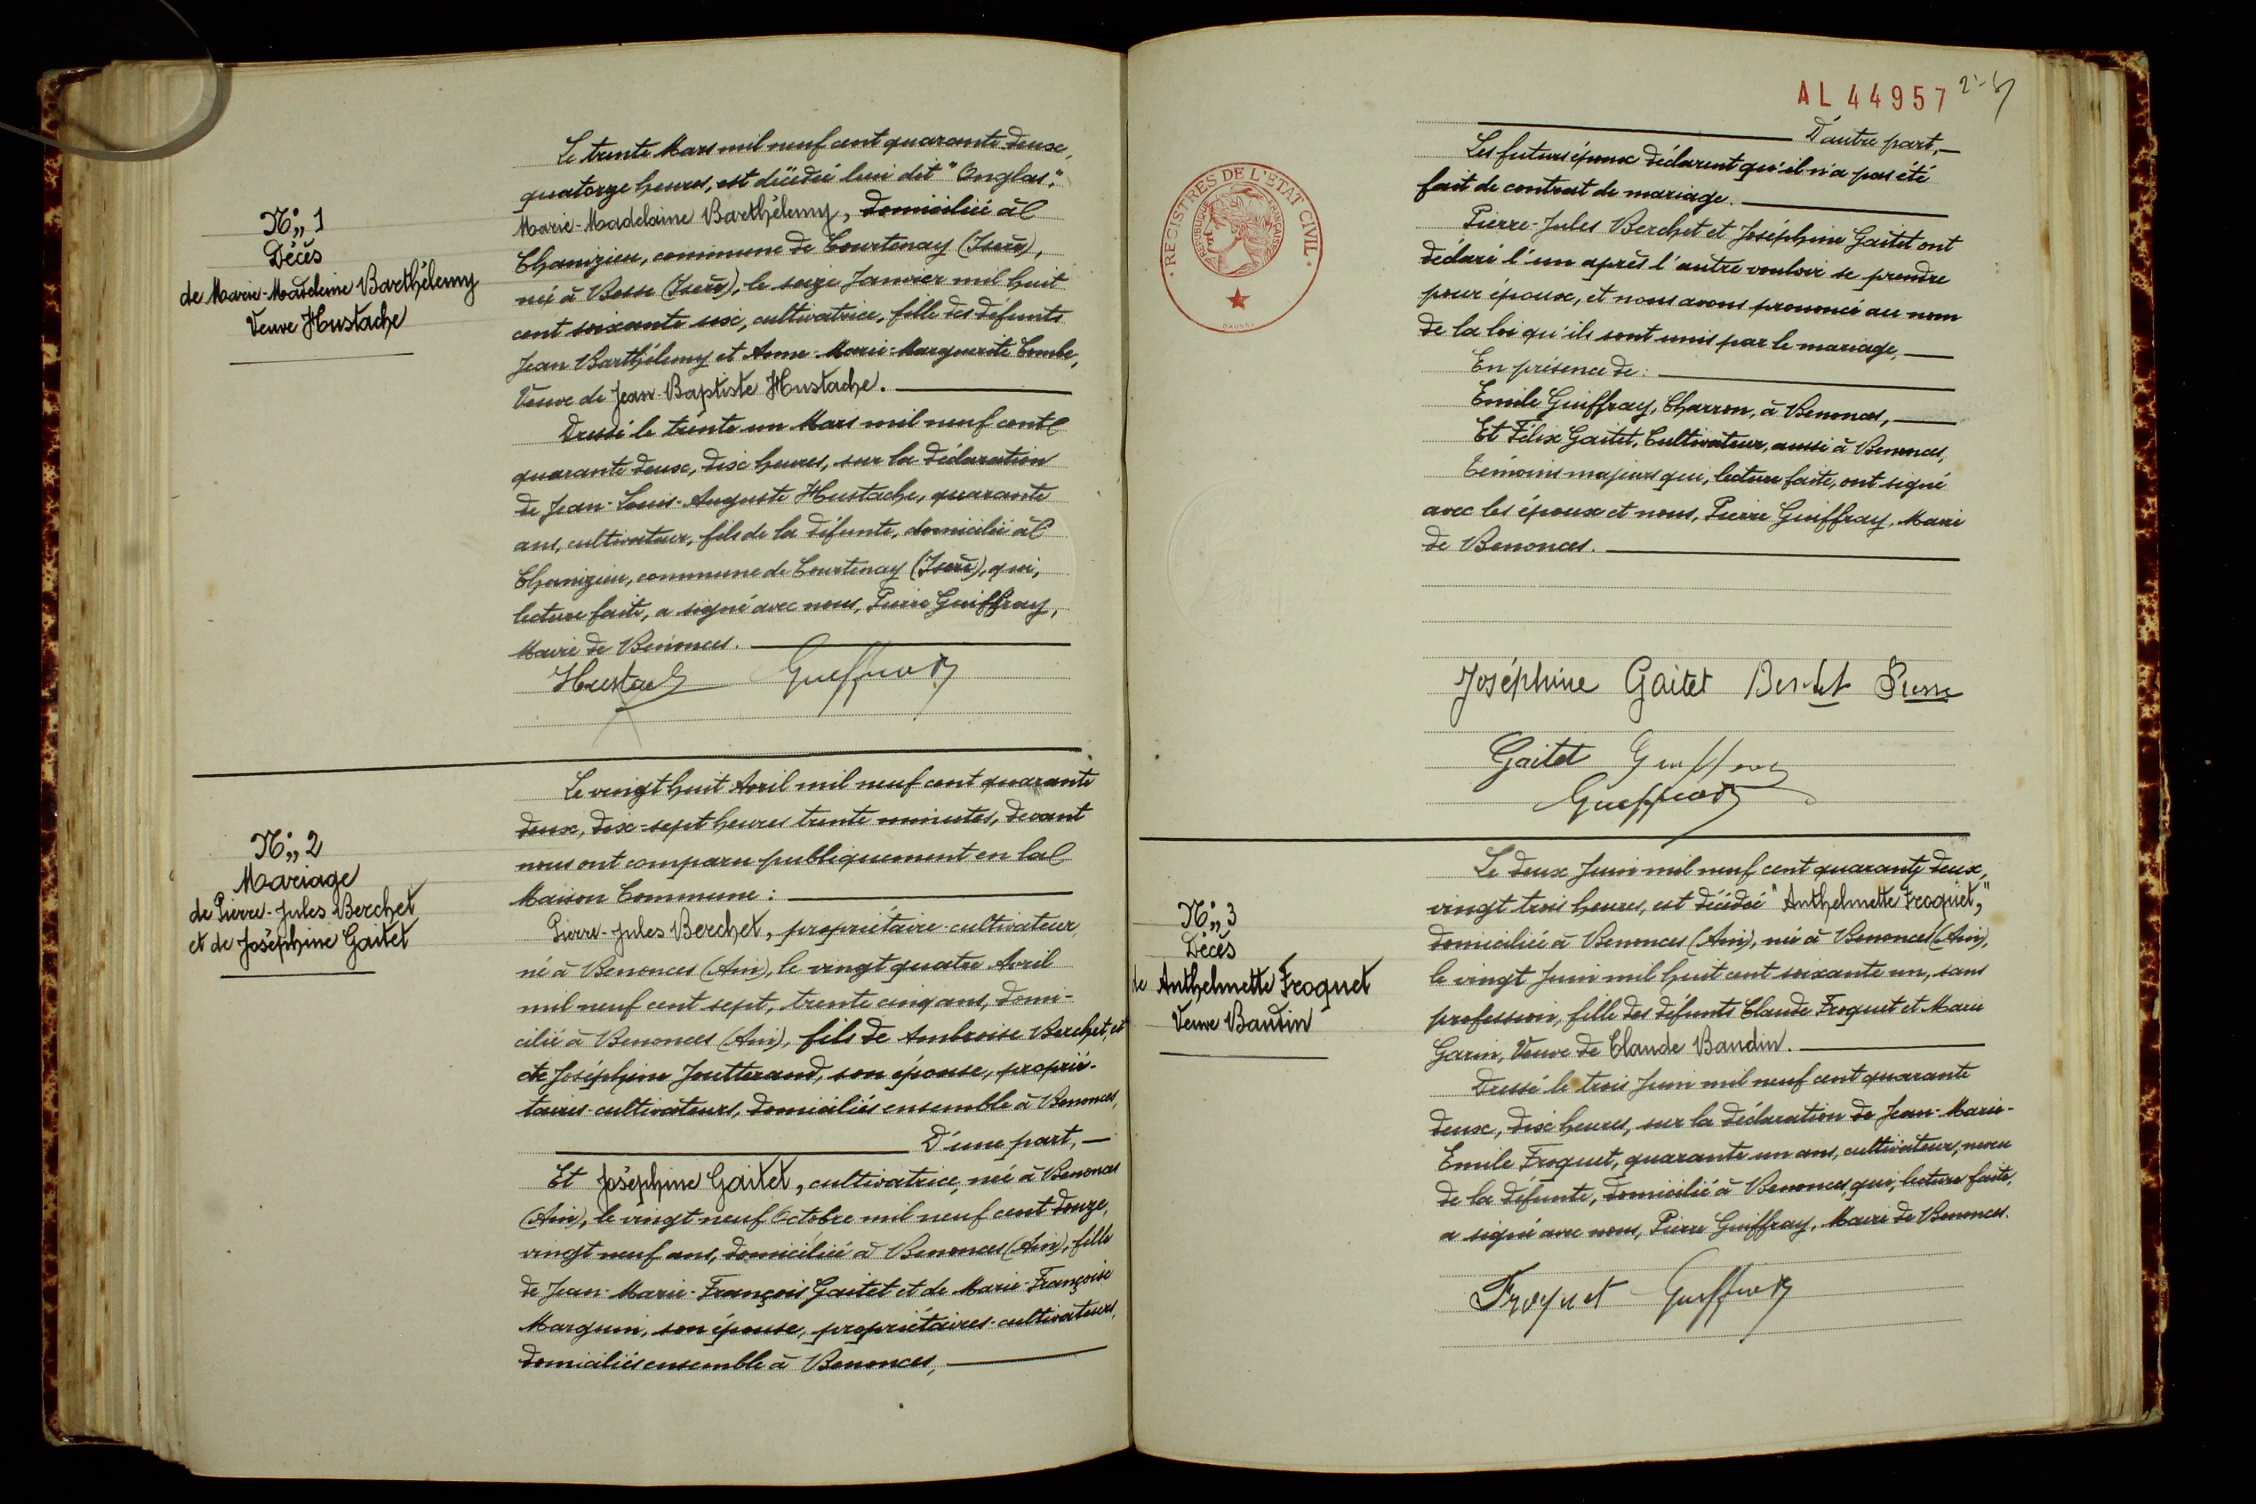 N:,, 1
Décès
de Marie-Madeleine Barthélemy
Veuve Hustache
Le trente Mars mil neuf cent quarante deux,
quatorze heures, est décédée lieu dit "Onglas",
Marie-Madelaine Barthélemy, domiciliée à
Chanizieu, commune de Courtenay (Isère),
née à Besse (Isère), le seize Janvier mil huit
cent soixante six, cultivatrice, fille des défunts
Jean Barthélemy et Anne-Marie-Marguerite Combe,
Veuve de Jean-Baptiste Hustache.
Dressé le trente un Mars mil neuf cent
quarante deux, dix heures, sur la déclaration
de Jean-Louis-Auguste Hustache, quarante
ans, cultivateur, fils de la défunte, domicilié à
Chanizieu, commune de Courtenay (Isère), qui,
lecture faite, a signé avec nous, Pierre Guiffray,
Maire de Benonces.
Hustache Guiffray
N:,, 2
Mariage
de Pierre-Jules Berchet
et de Joséphine Gaitet
Le vingt huit Avril mil neuf cent quarante
deux, dix-sept heures trente minutes, devant
nous ont comparu publiquement en la
Maison Commune :
Pierre-Jules Berchet, propriétaire-cultivateur,
né à Benonces (Ain), le vingt quatre Avril
mil neuf cent sept, trente cinq ans, domi-
cilié à Benonces (Ain), fils de Ambroise Berchet, et
de Joséphine Joutterand, son épouse, proprié-
taires-cultivateurs, domiciliés ensemble à Benonces,
D'une part,
Et Joséphine Gaitet, cultivatrice, née à Benonces
(Ain), le vingt neuf Octobre mil neuf cent douze,
vingt neuf ans, domiciliée à Benonces (Ain), fille
de Jean-Marie-François Gaitet et de Marie-Françoise
Marguin, son épouse, propriétaires-cultivateurs,
domiciliés ensemble à Benonces,
AL 44957
REGISTRES DE L'ETAT CIVIL
REPUBLIQUE FRANÇAISE
D'autre part,
Les futurs époux déclarent qu'il n'a pas été
fait de contrat de mariage.
Pierre-Jules Berchet et Joséphine Gaitet ont
déclaré l'un après l'autre vouloir se prendre
pour époux, et nous avons prononcé au nom
de la loi qu'ils sont unis par le mariage,
En présence de :
Emile Guiffray, Charron, à Benonces,
Et Félix Gaitet, Cultivateur, aussi à Benonces,
témoins majeurs qui, lecture faite, ont signé
avec les époux et nous, Pierre Guiffray, Maire
de Benonces.
Joséphine Gaitet Berchet Pierre
Gaitet Guiffray
Guiffray
N:,, 3
Décès
de Anthelmette Froquet
Veuve Baudin
Le deux Juin mil neuf cent quarante deux,
vingt trois heures, est décédée "Anthelmette Froquet",
domiciliée à Benonces (Ain), née à Benonces (Ain),
le vingt Juin mil huit cent soixante un, sans
profession, fille des défunts Claude Froquet et Marie
Garin, Veuve de Claude Baudin.
Dressé le trois Juin mil neuf cent quarante
deux, dix heures, sur la déclaration de Jean-Marie-
Emile Froquet, quarante un ans, cultivateur, neveu
de la défunte, domicilié à Benonces, qui, lecture faite,
a signé avec nous, Pierre Guiffray, Maire de Benonces.
Froquet Guiffray